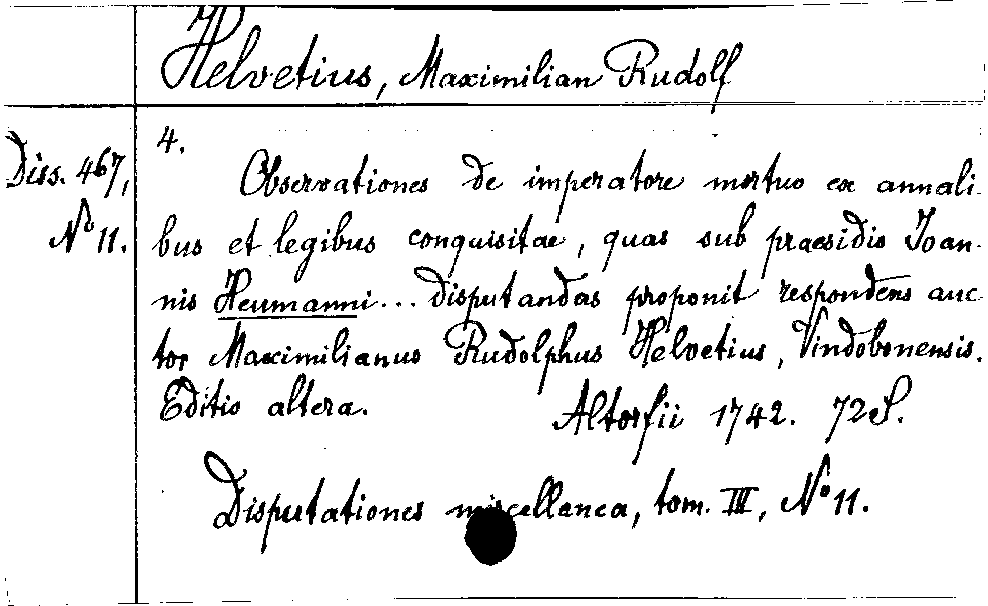 Helvetius, Maximilian Rudolf
Diss. 467,
No 11.
4.
Observationes de imperatore mortuo ex annali-
bus et legibus conquisitae, quas sub praesidio Joan-
nis Heumanni... disputandas proponit respondens auc-
tor Maximilianus Rudolphus Helvetius, Vindobonensis.
Editio altera.
Altorfii 1742. 72 S.
Disputationes miscellanea, tom. III, No 11.